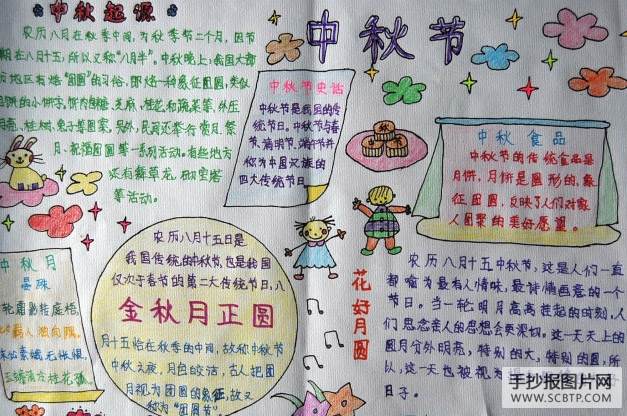 中秋起源
农历八月在秋季中间,为秋季第二个月,因节
期在八月十五,所以又称"八月半"。中秋晚上,我国大部
分地区有烙"团圆"的习俗,即烙一种象征团圆,类似
月饼的小饼子,饼内包糖、芝麻、桂花和蔬菜等,外压
月亮、桂树、兔子等图案。
月、祝酒团圆等一系列活动。有些地方
还有舞草龙,砌宝塔
等活动。
中秋节
中秋节史话
中秋节是我国的传
统节日。中秋节与春
节、清明节、端午节并
称为中国汉族的
四大传统节日
中秋食品
中秋节的传统食品是
月饼,月饼是圆形的,象
征团圆,反映了人们对家
人团聚的美好愿望。
中秋月
晏殊
轮霜影转庭梧,
人独向隅。
未必素娥无怅恨,
玉蟾清冷桂花孤。
农历八月十五日是
我国传统的中秋节,也是我国
仅次于春节的第二大传统节日,八
金秋月正圆
月十五恰在秋季的中间,故称中秋节
中秋之夜,月色皎洁,古人把圆
月视为团圆的象征,故又
称为"团圆节"
花好月圆
农历八月十五中秋节,这是人们一直
都喻为最有人情味、最诗情画意的一个
节日。当一轮明月高高挂起的时刻,人
们思念亲人的思想会更深切。这一天天上的
圆月分外明亮,特别的大,特别的圆,所
以,这一天也被视为
日子。
手抄报图片网
WWW.SCBTP.COM